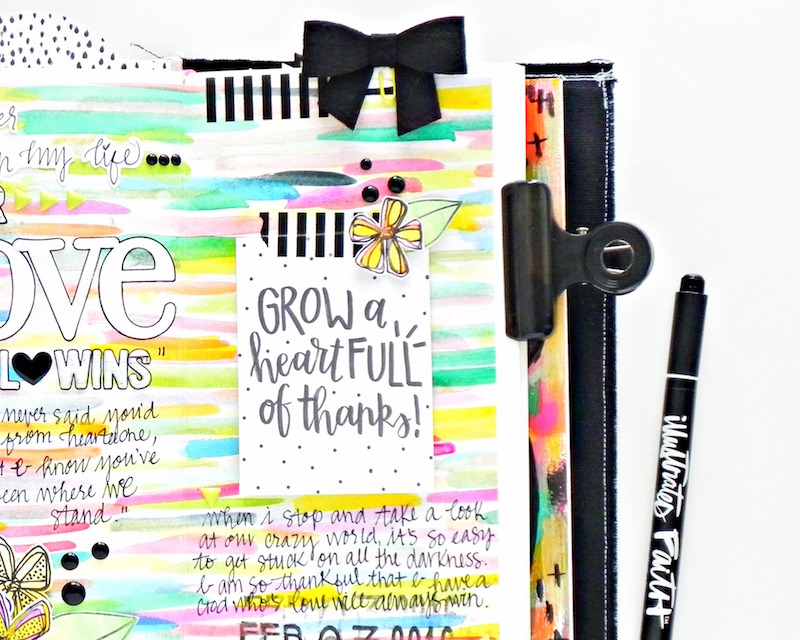 my life...
R
Love
L♥WINS"
never said you'd
from heartache,
I know you've
been where we
stand."
GROW a
heartFULL
of thanks!
when i stop and take a look
at our crazy world, it's so easy
to get stuck on all the darkness.
I am so thankful that I have a
God who's love will always win.
FEB 07 2016
illustrated
Faith